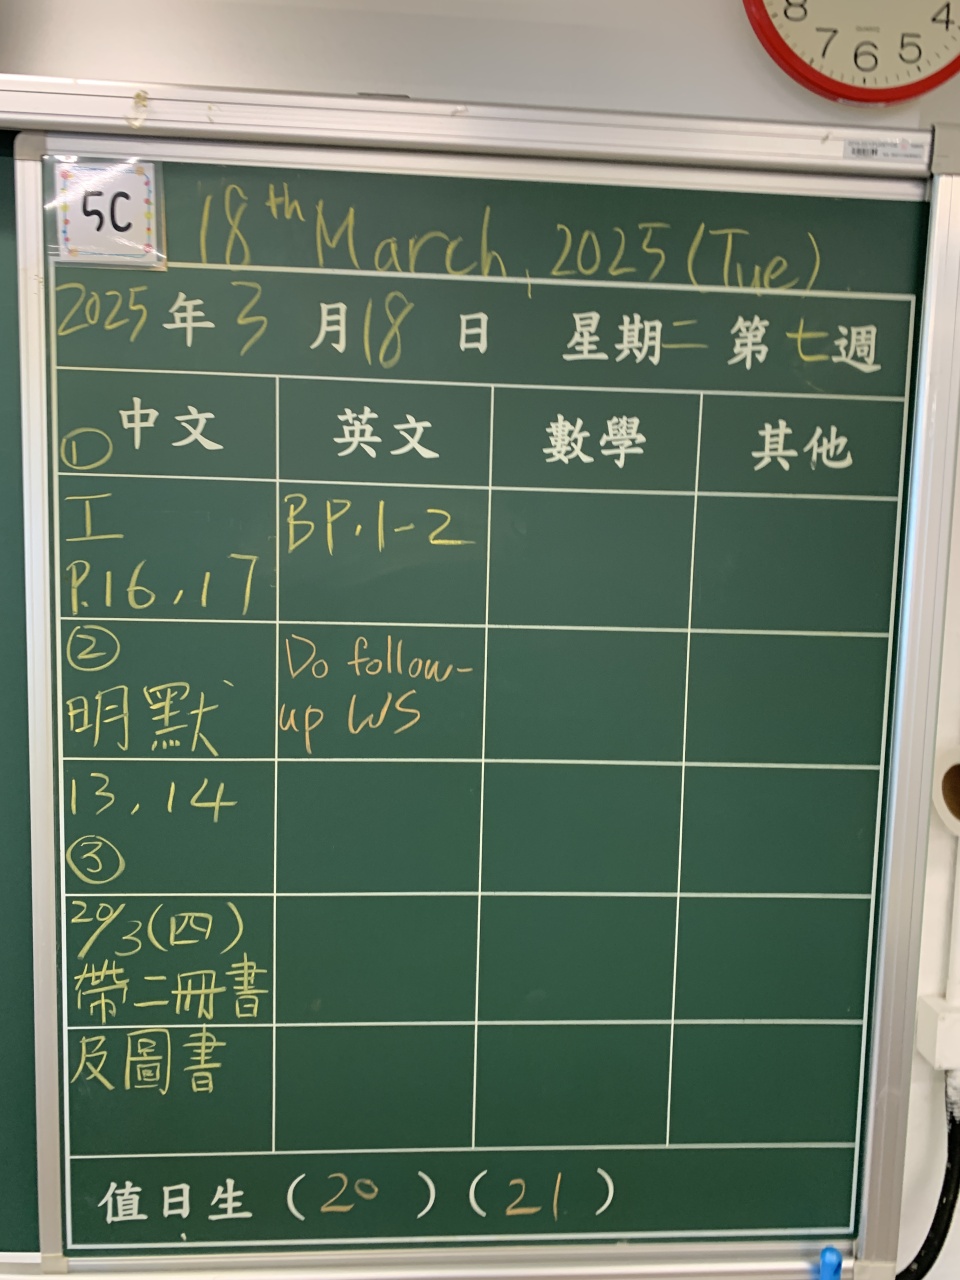 8 7 6 5 4
5C
18th March, 2025 (Tue)
2025年3月18日 星期二 第七週
①中文 英文 數學 其他
工
P.16, 17
BP.1-2
②
明默
Do follow-
up WS
13, 14
③
20/3(四)
帶二冊書
及圖書
值日生 (20) (21)